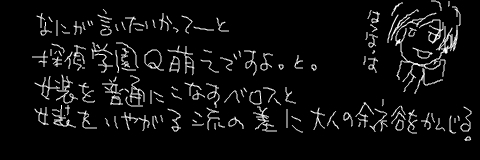 なにが言いたいかってーと
探偵学園Q萌えですよ。と。
女装を普通にこなすベロスと
女装をいやがる流の差に大人の余裕をかんじる。
はぁはぁ